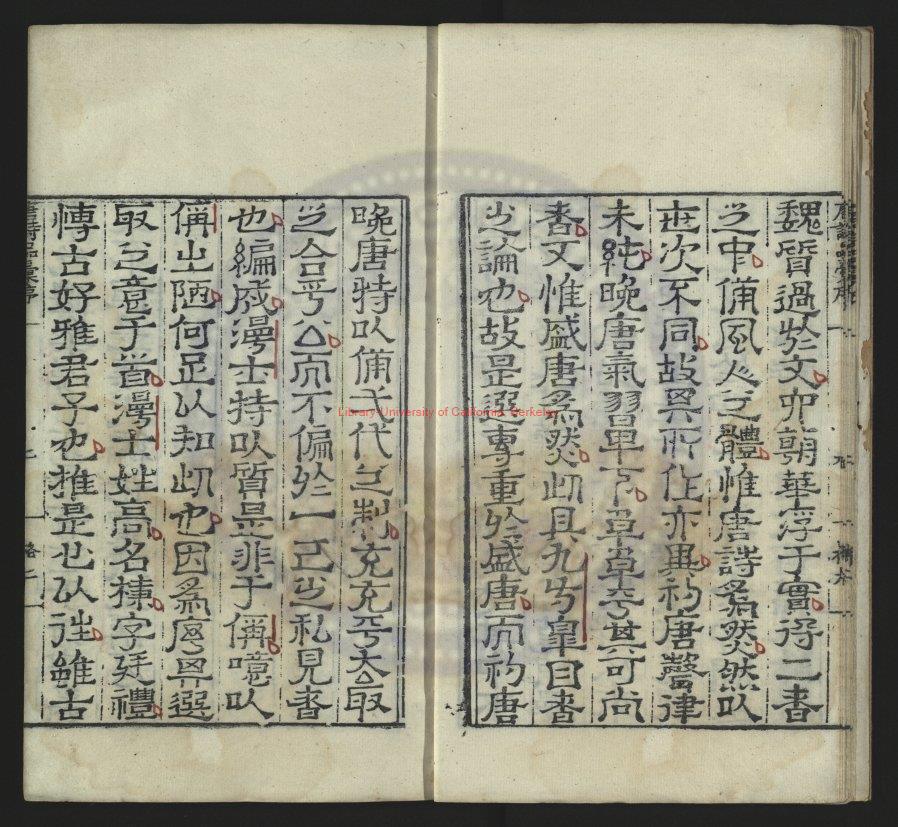 魏質過於文六朝華浮于實得二者
之中備風人之體惟唐詩為然然以
世次不同故其所作亦異初唐聲律
未純晚唐氣習卑下卓卓乎其可尚
者又惟盛唐為然此具九方皋目者
之論也故是選專重於盛唐而初唐
晚唐特以備弌代之制充充乎大取
之合乎公而不偏於一己之私見者
也編成漫士特以質是非于偁噫以
偁之陋何足以知此也因為序其選
取之意于首漫士姓高名棅字廷禮
博古好雅君子也推是心以往雖古
Library University of California, Berkeley